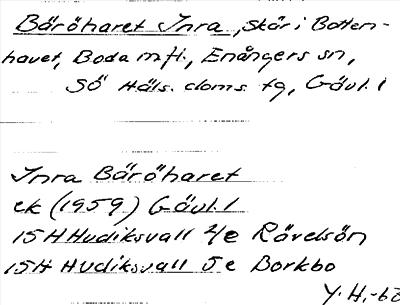 Båröharet Inra, skär i Botten-
havet, Boda m fl., Enångers sn,
SÖ Häls. doms. tg, Gävl. l
Inra Båröharet
ek (1959) Gävl. l
15H Hudiksvall 4e Rävelsön
15H Hudiksvall 5e Borkbo
Y. H. -62